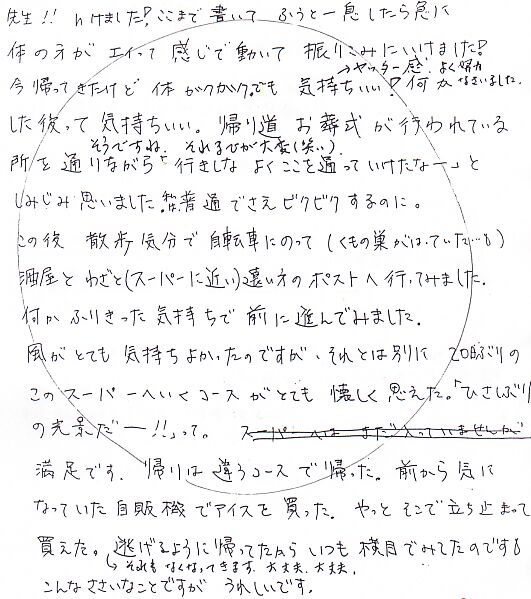 先生!! 行けました!ここまで書いて ふうと一息したら急に
体の方がエイって感じで動いて 振りこみにいけました!
→ヤッター感 よく努力なさいました。
今帰ってきたけど 体がクガクガでも 気持ちいい!何か
した後って気持ちいい。帰り道 お葬式が行われている
そうですね。それるひが大変(笑い)
所を通りながら「行きしな よくここを通っていけたなー」と
しみじみ思いました。普通でさえビクビクするのに。
この後 散歩気分で自転車にのって(くもの巣がはっていた…)
酒屋とわざと(スーパーに近い)遠い方のポストへ行ってみました。
何かふりきった気持ちで前に進んでみました。
風がとても気持ちよかったのですが、それとは別に 20日ぶりの
このスーパーへいくコースがとても懐しく思えた。「ひさしぶり
の光景だー!!」って。 スーパーへは まだ入っていませんが
満足です。帰りは違うコースで帰った。前から気に
なっていた自販機でアイスを買った。やっとそこで立ち止まって
買えた。逃げるように帰ってたからいつも横目でみてたのです
→それもなくなってきます。大丈夫、大丈夫。
こんなささいなことですが うれしいです。